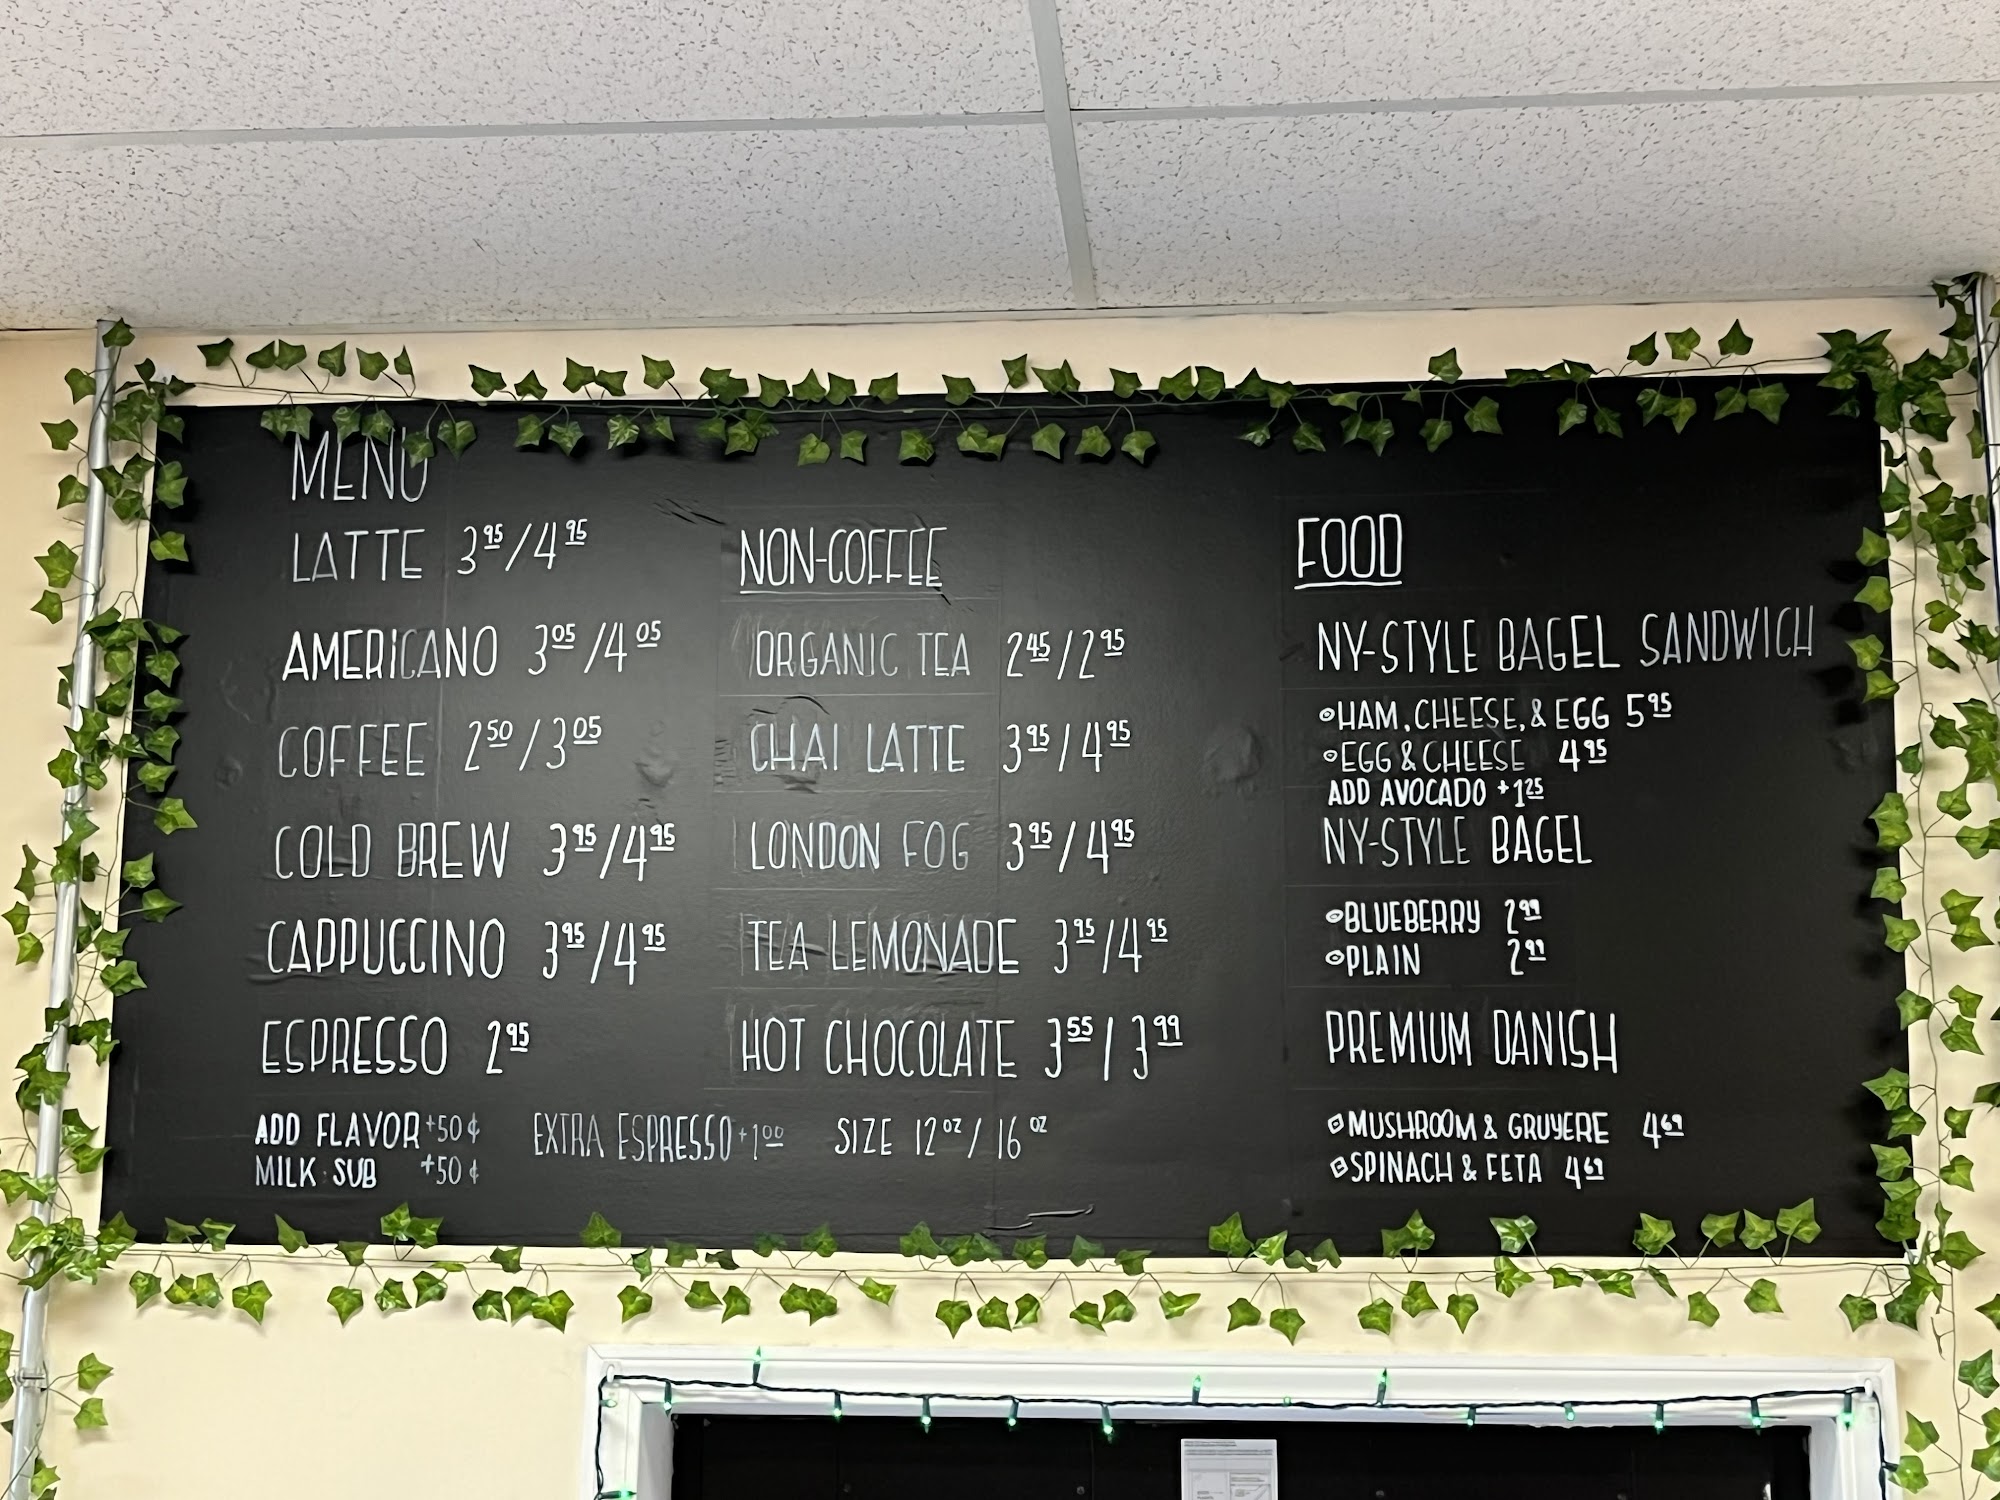 MENU
LATTE 3.95/4.95
AMERICANO 3.05/4.05
COFFEE 2.50/3.05
COLD BREW 3.95/4.95
CAPPUCCINO 3.95/4.95
ESPRESSO 2.95
ADD FLAVOR +50¢
MILK SUB +50¢
EXTRA ESPRESSO +1.00
SIZE 12oz / 16oz
NON-COFFEE
ORGANIC TEA 2.45/2.95
CHAI LATTE 3.95/4.95
LONDON FOG 3.95/4.95
TEA LEMONADE 3.95/4.95
HOT CHOCOLATE 3.55/3.99
FOOD
NY-STYLE BAGEL SANDWICH
HAM, CHEESE, & EGG 5.95
EGG & CHEESE 4.95
ADD AVOCADO +1.25
NY-STYLE BAGEL
BLUEBERRY 2.99
PLAIN 2.99
PREMIUM DANISH
MUSHROOM & GRUYERE 4.69
SPINACH & FETA 4.69